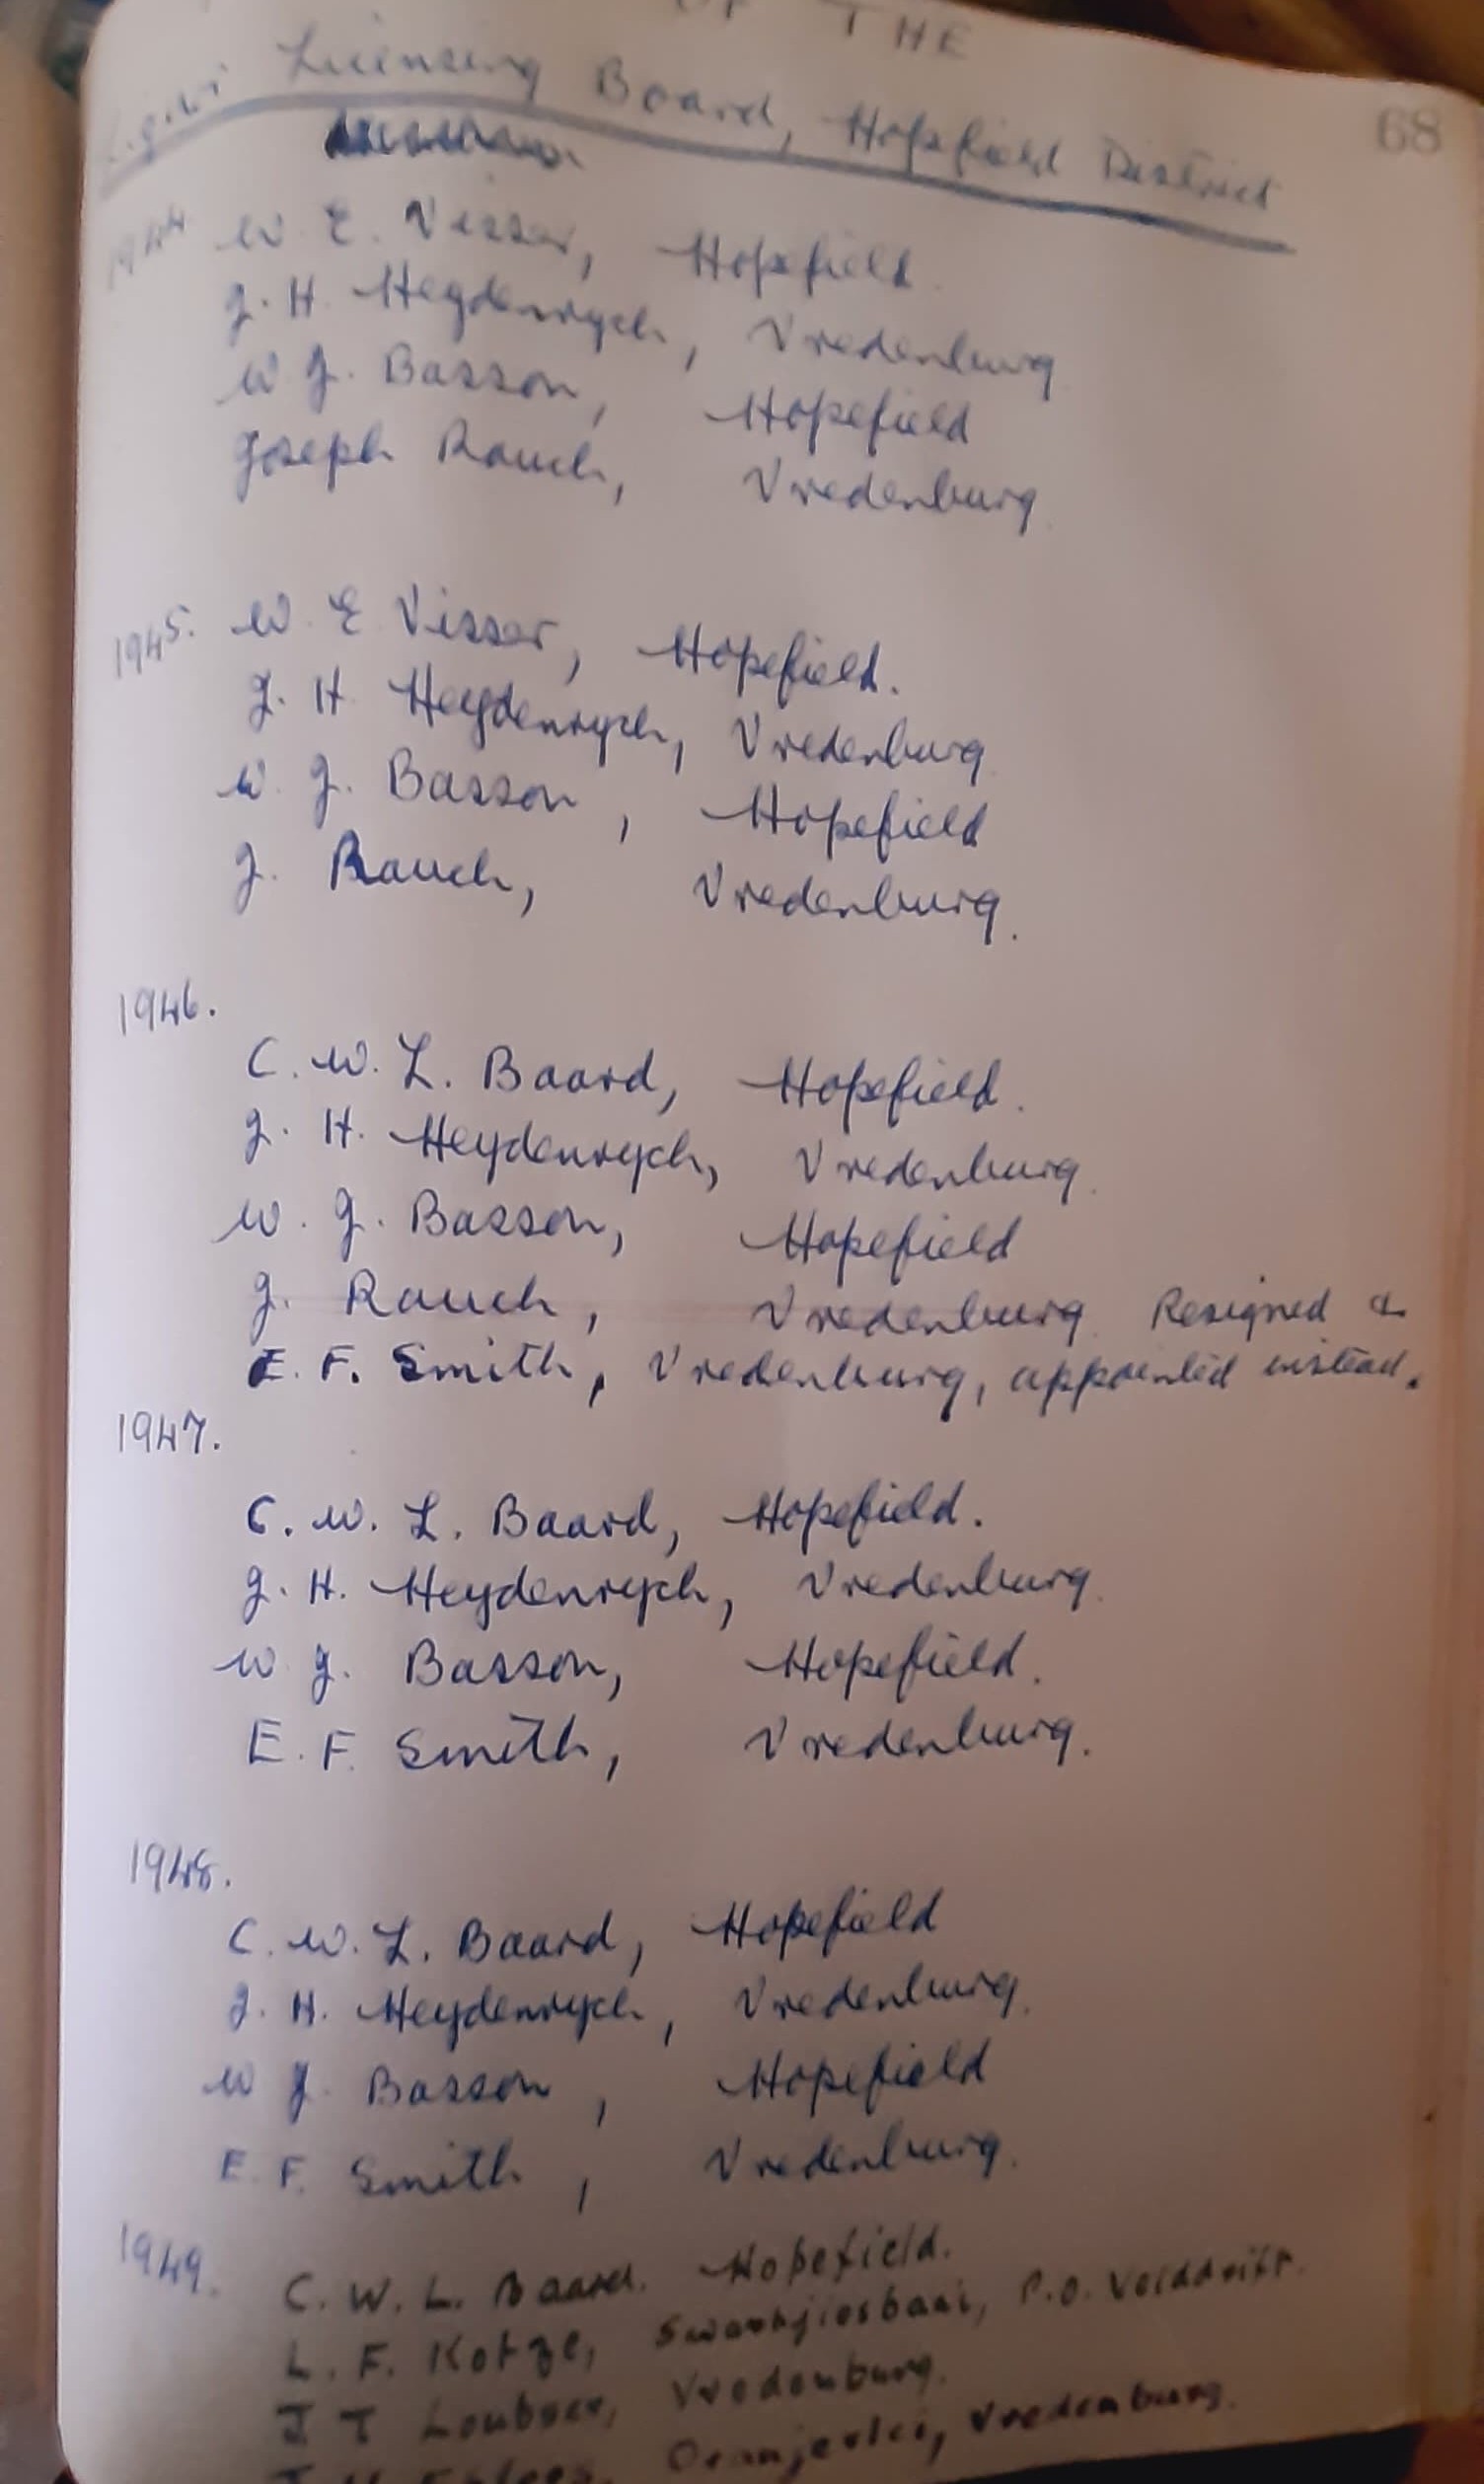 OF THE
68
Licensing Board, Hopefield District
1944 W. E. Visser, Hopefield.
J. H. Heydenrych, Vredenburg
W J. Basson, Hopefield
Joseph Rauch, Vredenburg.
1945. W. E Visser, Hopefield.
J. H Heydenrych, Vredenburg
W. J. Basson, Hopefield
J. Rauch, Vredenburg.
1946.
C. W. L. Baard, Hopefield.
J. H. Heydenrych, Vredenburg.
W. J. Basson, Hopefield
J. Rauch, Vredenburg. Resigned &
E. F. Smith, Vredenburg, appointed instead.
1947.
C. W. L. Baard, Hopefield.
J. H. Heydenrych, Vredenburg.
W J. Basson, Hopefield.
E. F. Smith, Vredenburg.
1948.
C. W. L. Baard, Hopefield
J. H. Heydenrych, Vredenburg.
W J. Basson, Hopefield
E. F. Smith, Vredenburg.
1949. C. W. L. Baard. Hopefield.
L. F. Kotze, P.O. Velddrift.
J T Loubser, Vredenburg.
Oranjevlei, Vredenburg.